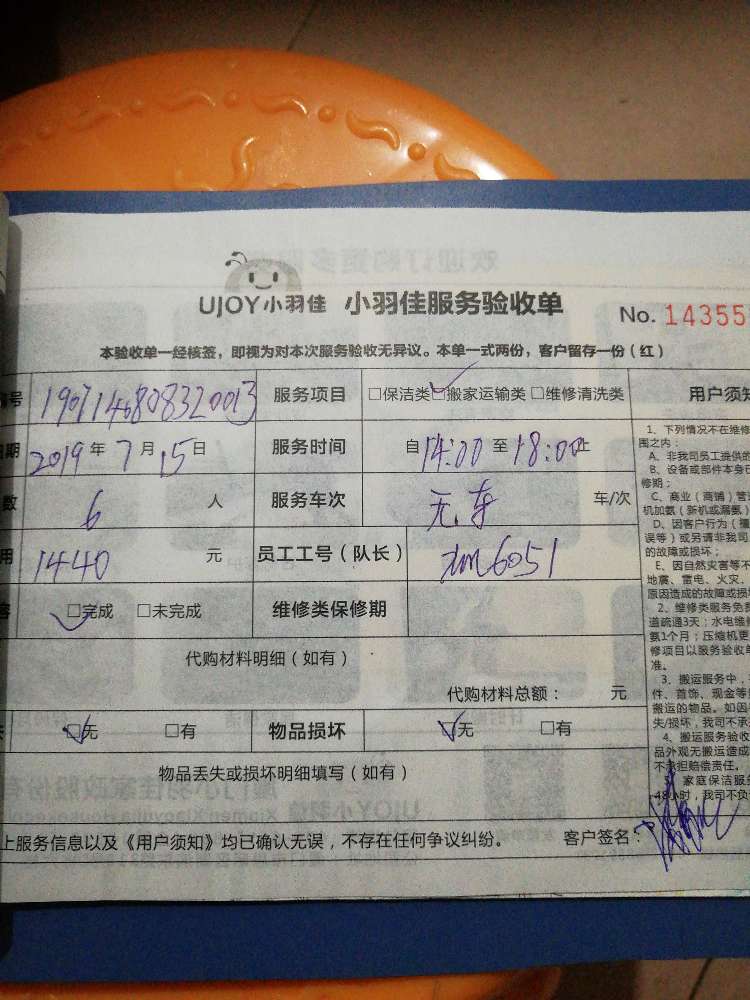 UJOY小羽佳 小羽佳服务验收单 No. 14355
本验收单一经核签，即视为对本次服务验收无异议。本单一式两份，客户留存一份（红）
号 1907146808320013 服务项目 □保洁类 □搬家运输类 □维修清洗类 用户须知
期 2019年7月15日 服务时间 自14:00至18:00止
数 6 人 服务车次 无车 车/次
用 1440 元 员工工号（队长） 6051
□完成 □未完成 维修类保修期
代购材料明细（如有）
代购材料总额： 元
□无 □有 物品损坏 □无 □有
物品丢失或损坏明细填写（如有）
上服务信息以及《用户须知》均已确认无误，不存在任何争议纠纷。 客户签名：
1、下列情况不在维修
围之内：
A、非我司员工提供的
B、设备或部件本身已
修期；
C、商业（商铺）管道
机加氨（新机或漏氨）
D、因客户行为（擅
误等）或另请非我司
的故障或损坏；
E、因自然灾害等不
地震、雷电、火灾、
原因造成的故障或损
2、维修类服务免费
道疏通3天；水电维修
氨1个月；压缩机更
修项目以服务验收单
准。
3、搬运服务中，
件、首饰、现金等
搬运的物品。如因
失/损坏，我司不承
4、搬运服务验收
品外观无搬运造成
不承担赔偿责任。
家庭保洁服务
48小时，我司不负